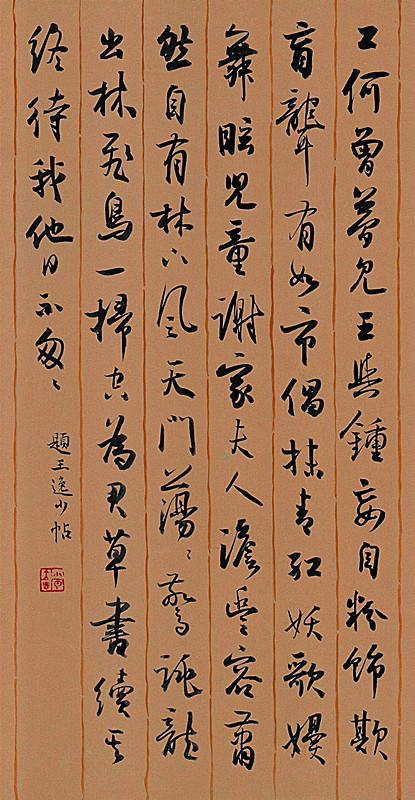 工何曾夢見王與鍾妄自粉飾欺
盲聾有如市倡抹青紅妖歌嫚
舞眩兒童謝家夫人澹豐容蕭
然自有林下風天門蕩々驚跳龍
出林飛鳥一掃空為君草書續其
終待我他日不匆々
題王逸少帖